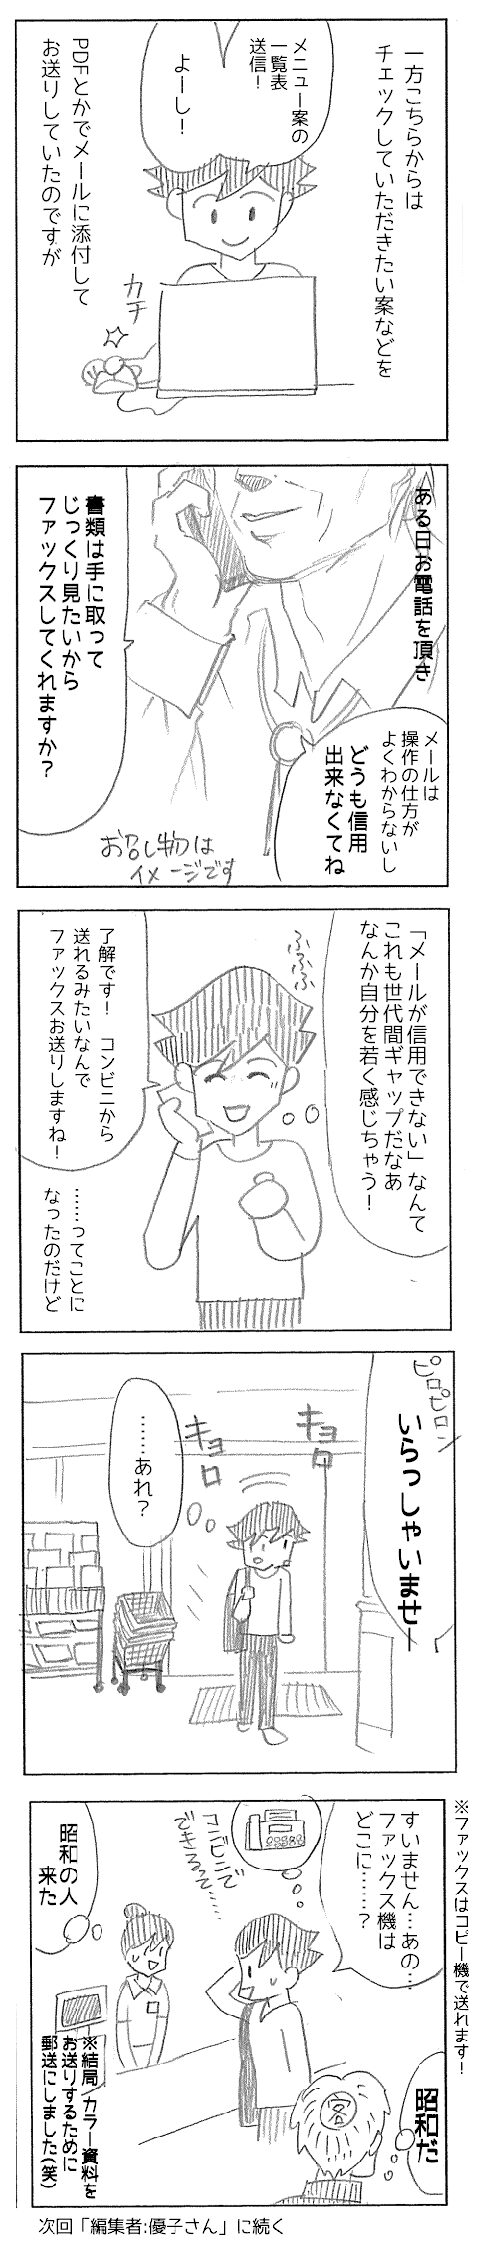 一方こちらからは
チェックしていただきたい案などを
メニュー案の
一覧表
送信！
よーし！
PDFとかでメールに添付して
お送りしていたのですが
カチ
ある日お電話を頂き
メールは
操作の仕方が
よくわからないし
どうも信用
出来なくてね
書類は手に取って
じっくり見たいから
ファックスしてくれますか？
お召し物は
イメージです
「メールが信用できない」なんて
これも世代間ギャップだなあ
なんか自分を若く感じちゃう！
ふふふふ
了解です！ コンビニから
送れるみたいなんで
ファックスお送りしますね！
……ってことに
なったのだけど
ピロピロン
いらっしゃいませー
キョロ
キョロ
……あれ？
※ファックスはコピー機で送れます！
すいません…あの…
ファックス機は
どこに……？
コンビニで
できるって…
昭和の人
来た
客
昭和だ
※結局、カラー資料を
お送りするために
郵送にしました(笑)
次回「編集者:優子さん」に続く